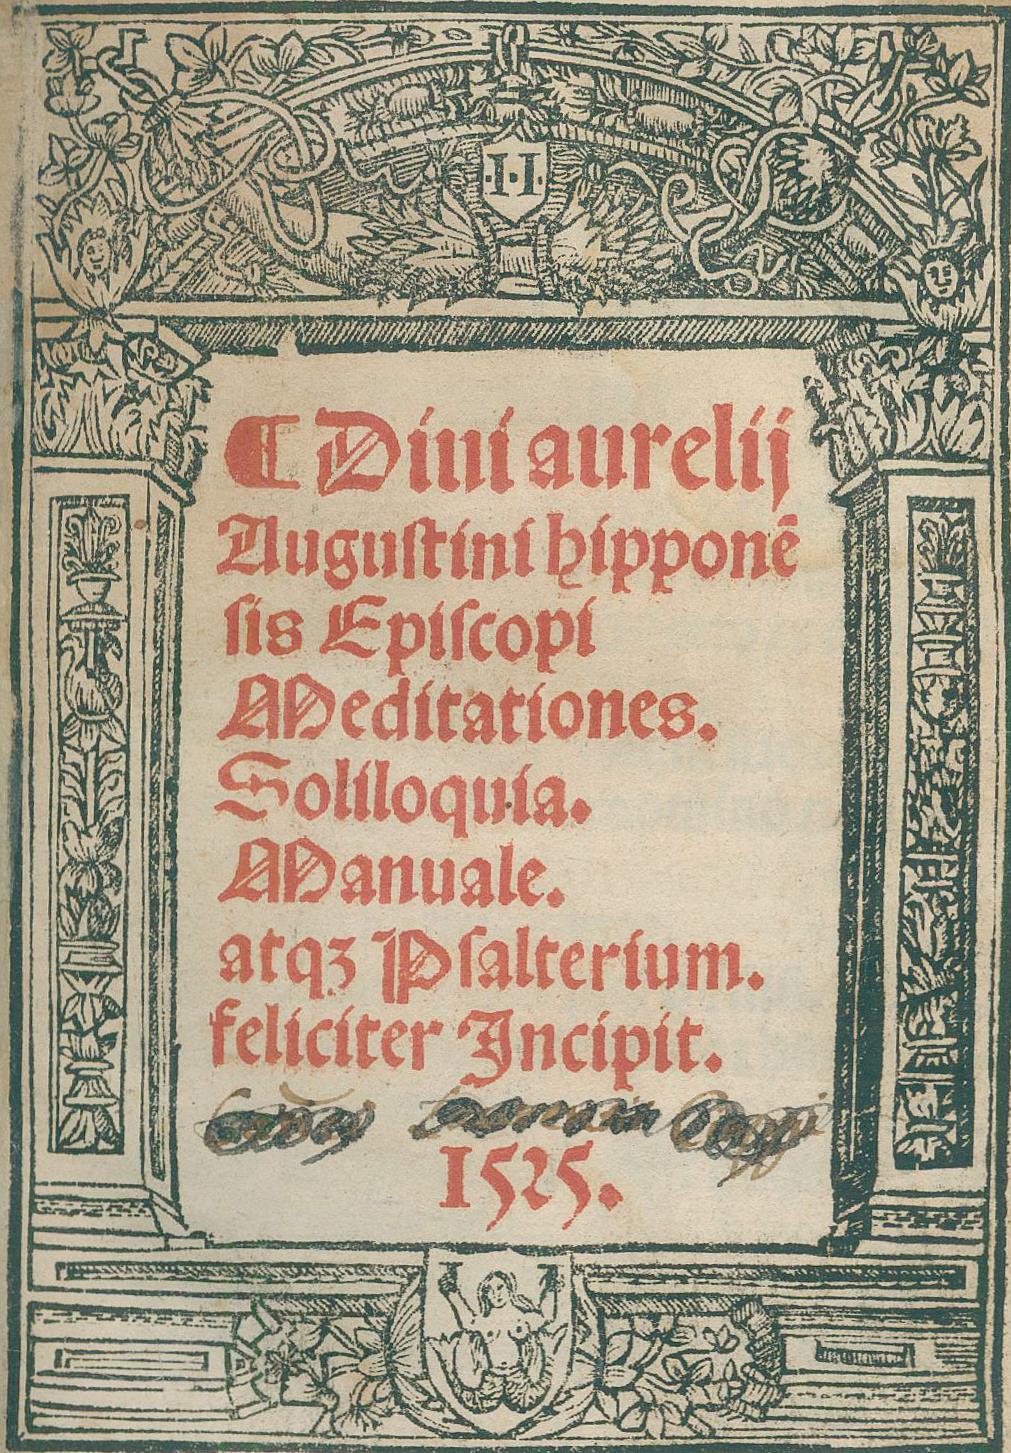 ·I·I·
¶ Diui aurelij
Auguſtini hipponē
ſis Epiſcopi
Meditationes.
Soliloquia.
Manuale.
atqꝫ Pſalterium.
feliciter Incipit.
1525.